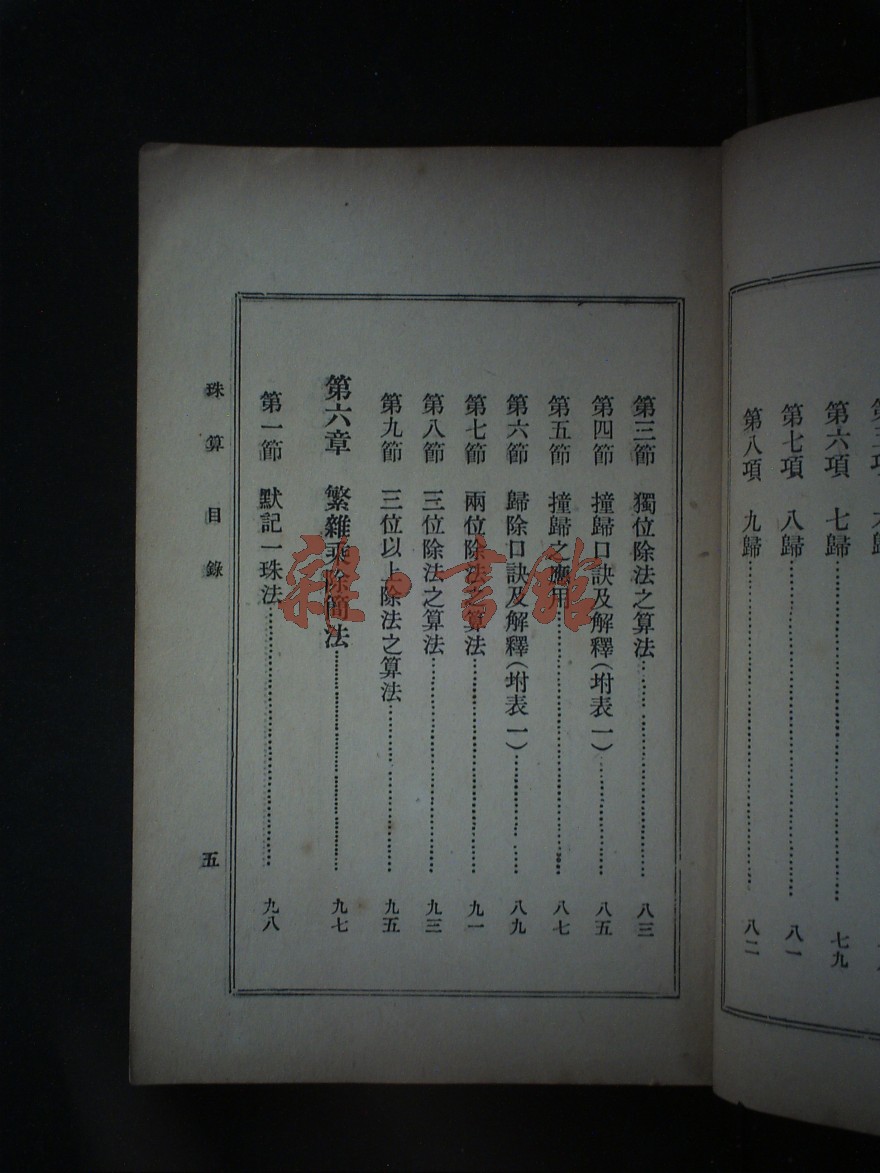 第六項　七歸……七九
第七項　八歸……八一
第八項　九歸……八二
第三節　獨位除法之算法……八三
第四節　撞歸口訣及解釋(坿表一)……八五
第五節　撞歸之應用……八七
第六節　歸除口訣及解釋(坿表一)……八九
第七節　兩位除法之算法……九一
第八節　三位除法之算法……九三
第九節　三位以上除法之算法……九五
第六章　繁雜乘除簡法……九七
第一節　默記一珠法……九八
珠算　目錄　五
雜·書館